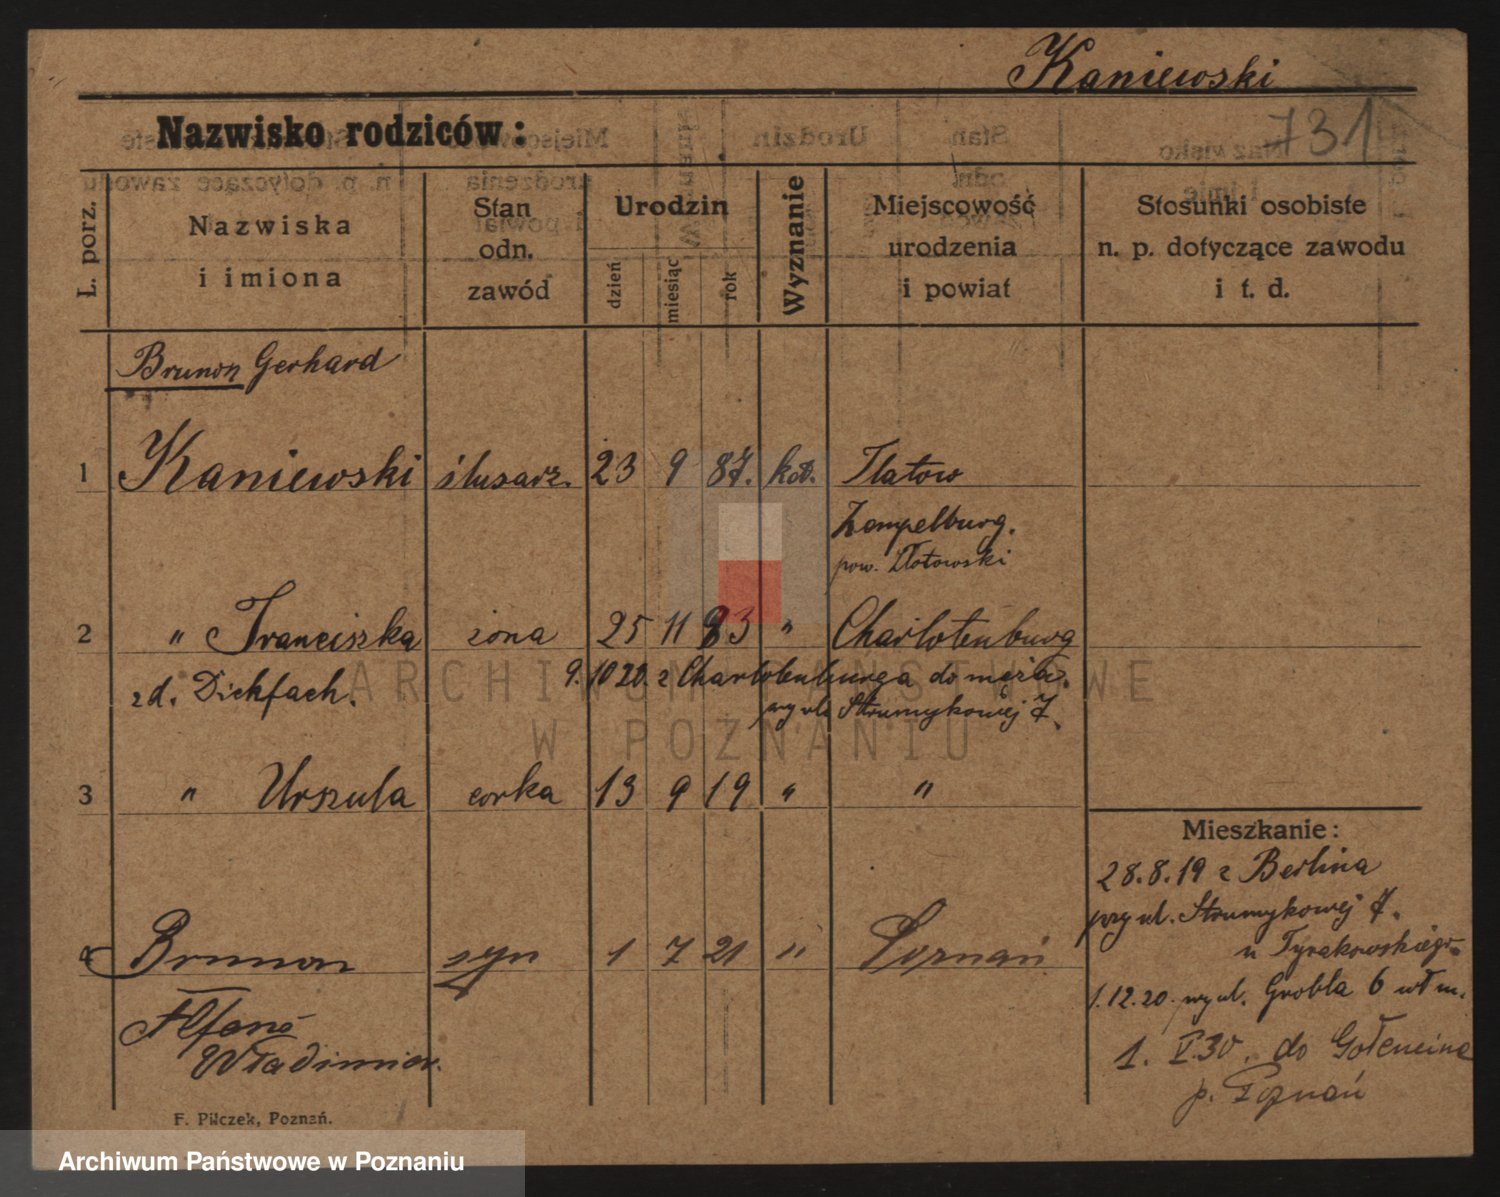 Kaniewski
731
Nazwisko rodziców:
L. porz.
Nazwiska
i imiona
Stan
odn.
zawód
Urodzin
dzień
miesiąc
rok
Wyznanie
Miejscowość
urodzenia
i powiat
Stosunki osobiste
n. p. dotyczące zawodu
i t. d.
Brunon Gerhard
1 Kaniewski ślusarz. 23 9 87. kat. Flatow
Zempelburg.
pow. Złotowski
2 " Franciszka żona 25 11 83 " Charlotenburg
zd. Dickfach. 9. 10 20. z Charlotenburga do męża.
przy ul. Strumykowej 7.
3 " Urszula corka 13 9 19 " "
Mieszkanie:
28.8.19 z Berlina
przy ul. Strumykowej 7.
u Tyrakowskiego
4 Brunon syn 1 7 21 " Poznań
1.12.20. przy ul. Grobla 6 wł m.
Alfons
Władimier.
1. V.30. do Gołencina
p. Poznań
F. Pilczek, Poznań.
ARCHIWUM PAŃSTWOWE
W POZNANIU
Archiwum Państwowe w Poznaniu